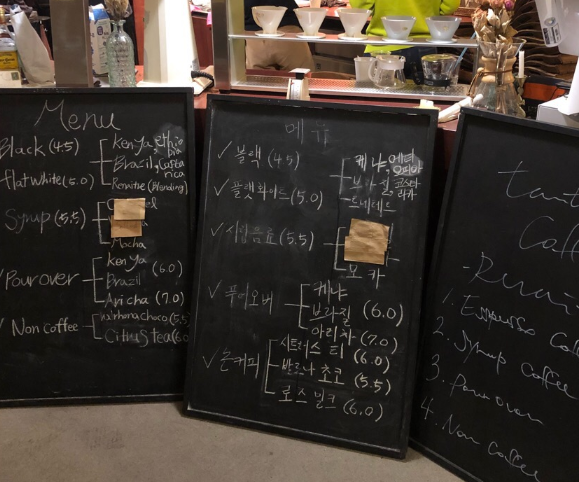 Menu
Black (4.5)
Kenya, Ethio
pia
Brazil, Costa
rica
flat white (5.0)
(Blending)
Syrup (5.5)
Mocha
✓ Pour over
Kenya
Brazil
(6.0)
Aricha (7.0)
✓ Non coffee
choco (5.5)
Citrus tea (6.0
메뉴
✓ 블랙 (4.5)
케냐, 에티
오피아
브라질, 코스타
리카
✓ 플랫화이트 (5.0)
✓ 시럽음료 (5.5)
모카
✓ 푸어오버
케냐
브라질 (6.0)
아리차 (7.0)
✓ 논커피
시트러스 티 (6.0)
발로나 초코 (5.5)
로스 밀크 (6.0)
1. Espresso Coffee
2. Syrup Coffee
3. Pour over
4. Non coffee